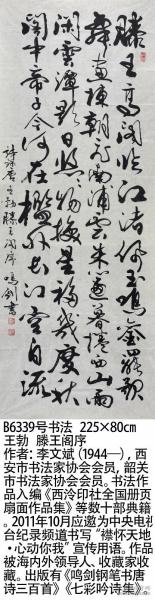 滕王高閣臨江渚佩玉鳴鑾罷歌
舞畫棟朝飛南浦雲朱簾暮捲西山雨
閑雲潭影日悠悠物換星移幾度秋
閣中帝子今何在檻外長江空自流
唐王勃滕王閣序 鳴劍書
B6339号书法 225×80cm
王勃 滕王阁序
作者:李文斌(1944—),西
安市书法家协会会员,韶关
市书法家协会会员。书法
作品入编《西泠印社全国册页
扇面作品集》等数十部典籍
。2011年10月应邀为中央电视
台纪录频道书写“襟怀天地
·心动你我”宣传用语。作品
被海内外领导人、收藏家收
藏。出版有《鸣剑钢笔书唐
诗三百首》《七彩吟诗集》。